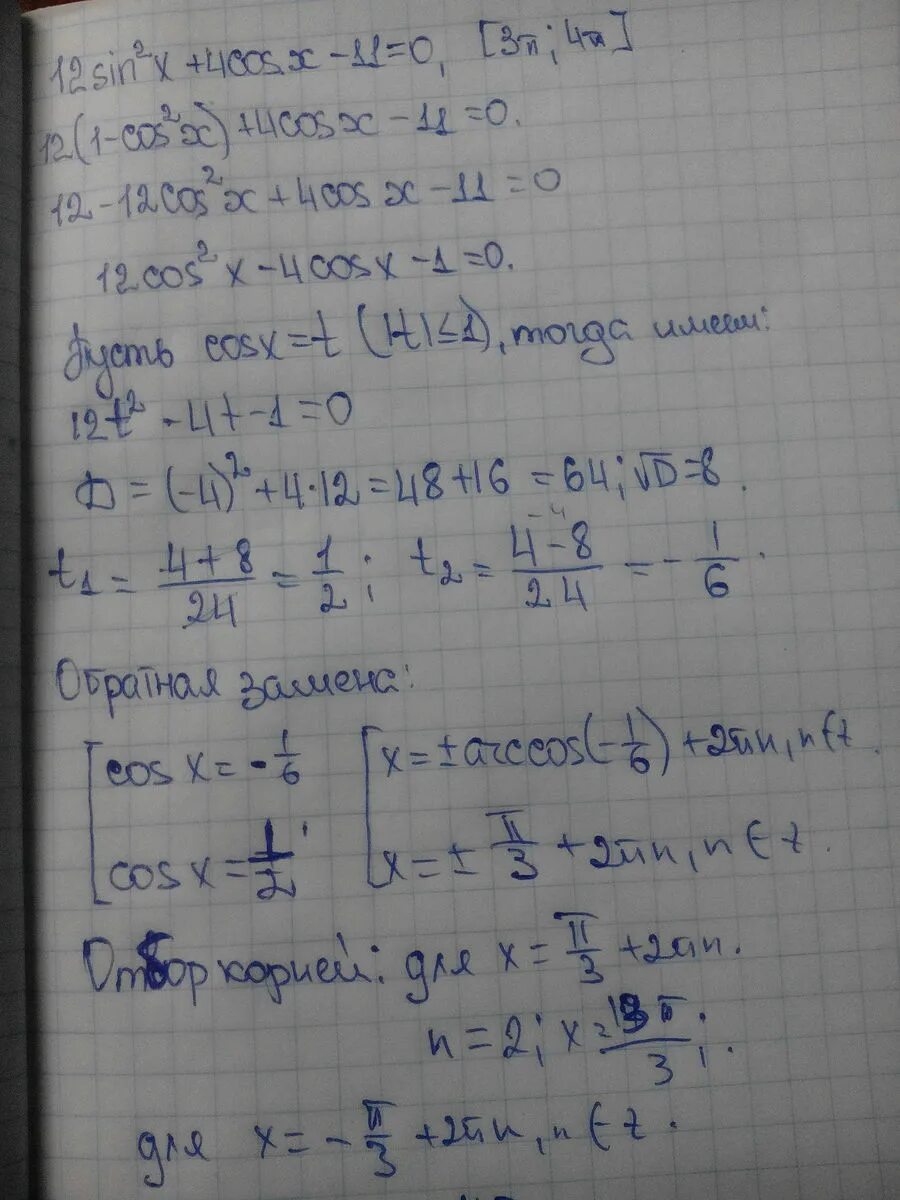 12sin²x + 4cosx - 11 = 0, [3π; 4π]
12(1-cos²x) + 4cosx - 11 = 0.
12 - 12cos²x + 4cosx - 11 = 0
12cos²x - 4cosx - 1 = 0.
Пусть cosx = t (|t| ≤ 1), тогда имеем:
12t² - 4t - 1 = 0
D = (-4)² + 4·12 = 48 + 16 = 64; √D = 8.
t₁ = (4+8)/24 = 1/2; t₂ = (4-8)/24 = -1/6.
-4
Обратная замена:
[cosx = -1/6 [x = ± arccos(-1/6) + 2πn, n ∈ z.
[cosx = 1/2; [x = ± π/3 + 2πn, n ∈ z.
Отбор корней: для x = π/3 + 2πn.
n = 2; x = π/3;.
для x = -π/3 + 2πn, n ∈ z.